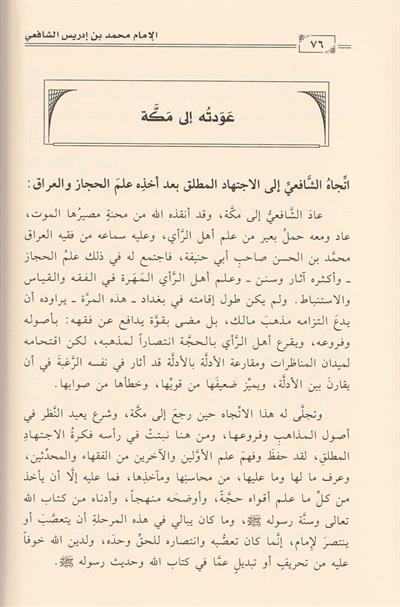 الإمام محمد بن إدريس الشافعي
٧٦
عَودتُه إلى مَكَّة
اتِّجاهُ الشَّافعيِّ إلى الاجتهاد المطلق بعد أخذِه علمَ الحجاز والعراق:
عادَ الشَّافعيُّ إلى مَكَّة، وقد أنقذَه الله من محنةٍ مصيرُها الموت،
عاد ومعه حملُ بعير من علم أهل الرَّأي، وعليه سماعه من فقيه العراق
محمَّد بن الحسن صاحبِ أبي حنيفة، فاجتمع له في ذلك علمُ الحجاز
ـ وأكثره آثار وسنن ـ وعلم أهل الرَّأي المَهَرة في الفقه والقياس
والاستنباط. ولم يكن طول إقامته في بغداد ـ هذه المرَّة ـ يراوده أن
يدعَ التزامه مذهبَ مالك، بل مضى بقوَّة يدافع عن فقهه: بأصوله
وفروعه، ويقرع أهل الرَّأي بالحجَّة انتصاراً لمذهبه، لكن اقتحامه
لميدان المناظرات ومقارعة الأدلَّة بالأدلَّة قد أثار في نفسه الرَّغبةَ في أن
يقارنَ بين الأدلَّة، ويميِّز ضعيفَها من قويِّها، وخطأها من صوابها.
وتجلَّى له هذا الاتِّجاه حين رجعَ إلى مكَّة، وشرع يعيد النَّظر في
أصول المذاهبِ وفروعها، ومن هنا نبتتْ في رأسه فكرةُ الاجتهادِ
المطلقِ، لقد حفظَ وفهمَ علم الأوَّلين والآخرين من الفقهاء والمحدِّثين،
وعرف ما لها وما عليها، من محاسنِها ومآخذِها، فما عليه إلَّا أن يأخذ
من كلِّ ما علم أقواه حجَّةً، وأوضحَه منهجاً، وأدناه من كتاب الله
تعالى وسنَّة رسوله ﷺ، وما كان يبالي في هذه المرحلةِ أن يتعصَّب أو
ينتصرَ لإمام، إنَّما كان تعصُّبه وانتصاره للحقِّ وحدَه، ولدين الله خوفاً
عليه من تحريفٍ أو تبديلٍ عمَّا في كتاب الله وحديث رسوله ﷺ.